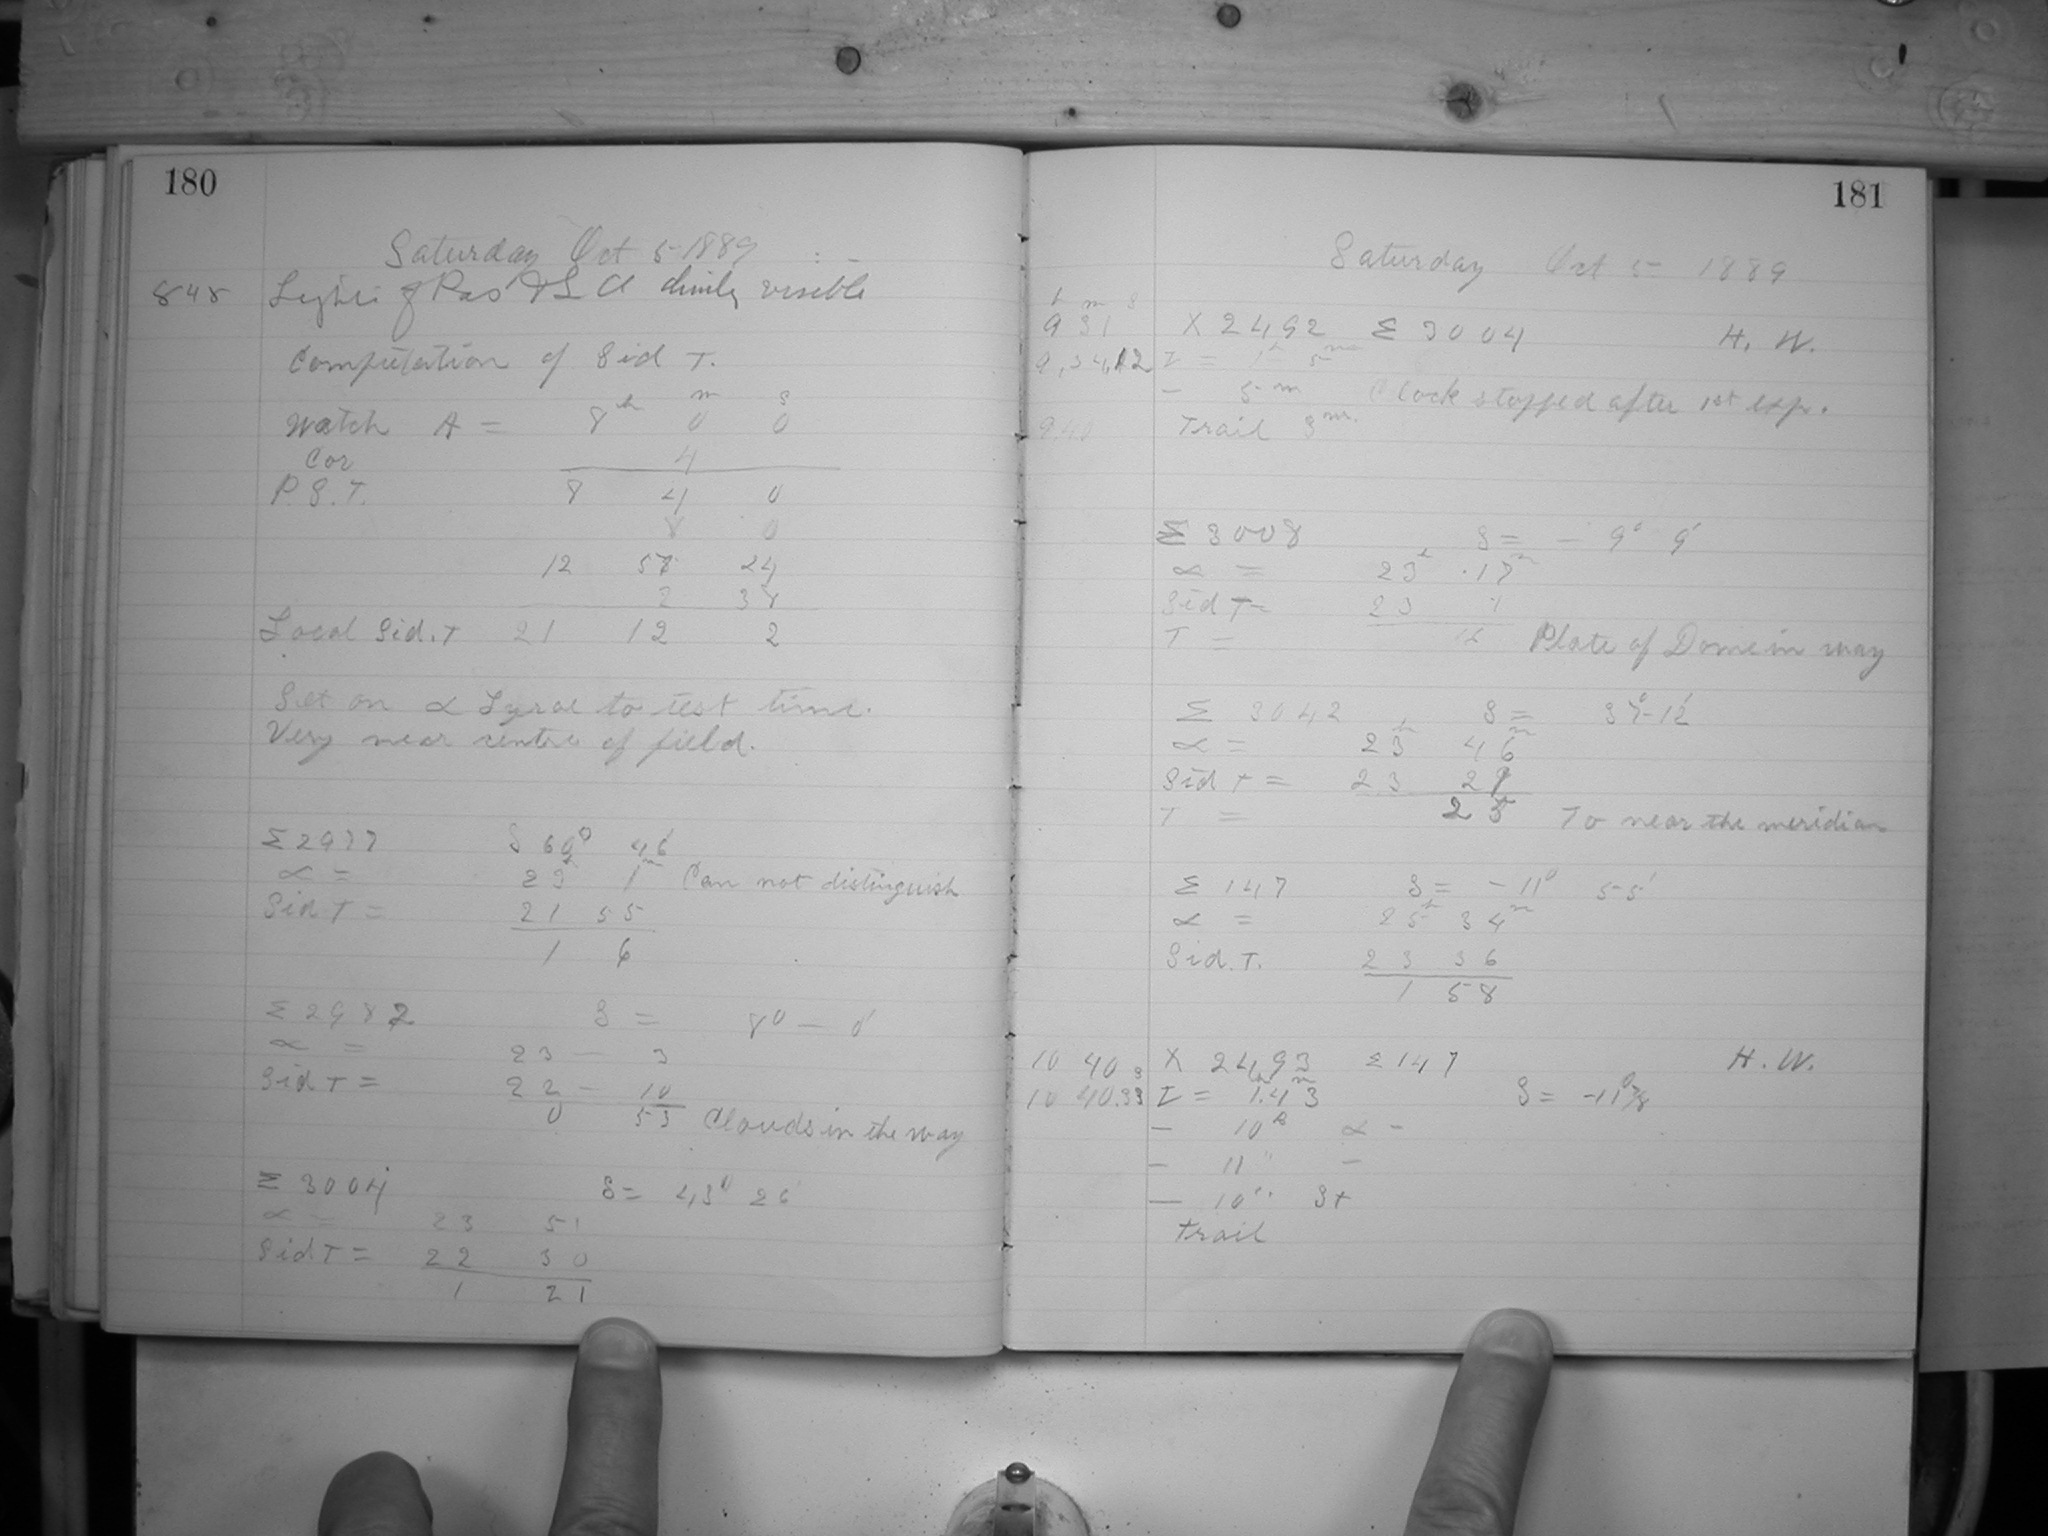 180
Saturday Oct 5 1889
848 Lights of Pas & L A dimly visible
Computation of Sid T.
h m s
Watch A = 8 0 0
Cor 4
P.S.T. 8 4 0
8 0
12 57 24
2 38
Local Sid. T 21 12 2
Set on α Lyrae to test time.
Very near centre of field.
Σ 2977 δ 60° 46'
α = 23h 1m Can not distinguish
Sid T = 21 55
1 6
Σ 2982 δ = 8° — 0'
α = 23 — 3
Sid T = 22 — 10
0 53 Clouds in the way
Σ 3004 δ = 43° 26'
α = 23 51
Sid T = 22 30
1 21
181
Saturday Oct 5 1889
h m s
9 31 X 2492 Σ 3004 H. W.
9,34,12 I = 1h 5m
— 5m Clock stopped after 1st exp.
9.40 Trail 3m.
Σ 3008 δ = — 9° 9'
α = 23h 17m
Sid T = 23 1
T = 16 Plate of Dome in way
Σ 3042 δ = 37°-12'
α = 23h 46m
Sid T = 23 21
T = 25 To near the meridian
Σ 147 δ = -11° 55'
α = 25h 34m
Sid. T. 23 36
1 58
10 40 X 2493 Σ 147 H. W.
10 40.33 I = 1h.43m δ = -11°7/8
— 10s α -
— 11" -
— 10" δ+
Trail